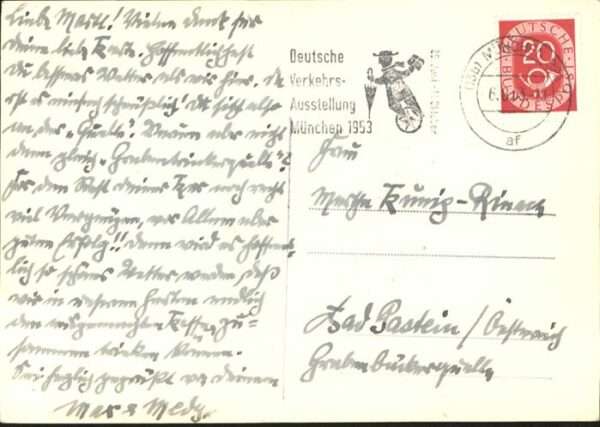 Liebe Martl! Vielen Dank für
deine liebe Karte. Hoffentlich hast
du besseres Wetter als wir hier, da
ist es einfach scheußlich! Du sitzt also
an der "Quelle"! Warum aber nicht
denn gleich "Grabenbäckerquelle"?
Für den Rest deiner Kur noch recht
viel Vergnügen, vor Allem aber
guten Erfolg!! Dann wird es hoffent-
lich so schönes Wetter werden, daß
wir in unserem Garten endlich
den ausgemachten Kaffee zu-
sammen trinken können.
Sei herzlich gegrüßt von deinem
Max & Medy.
Deutsche
Verkehrs-
Ausstellung
München 1953
DEUTSCHE
BUNDESPOST
20
af
Frau
Martha Kunig-Rinach
Bad Gastein / Österreich
Grabenbäckerquelle